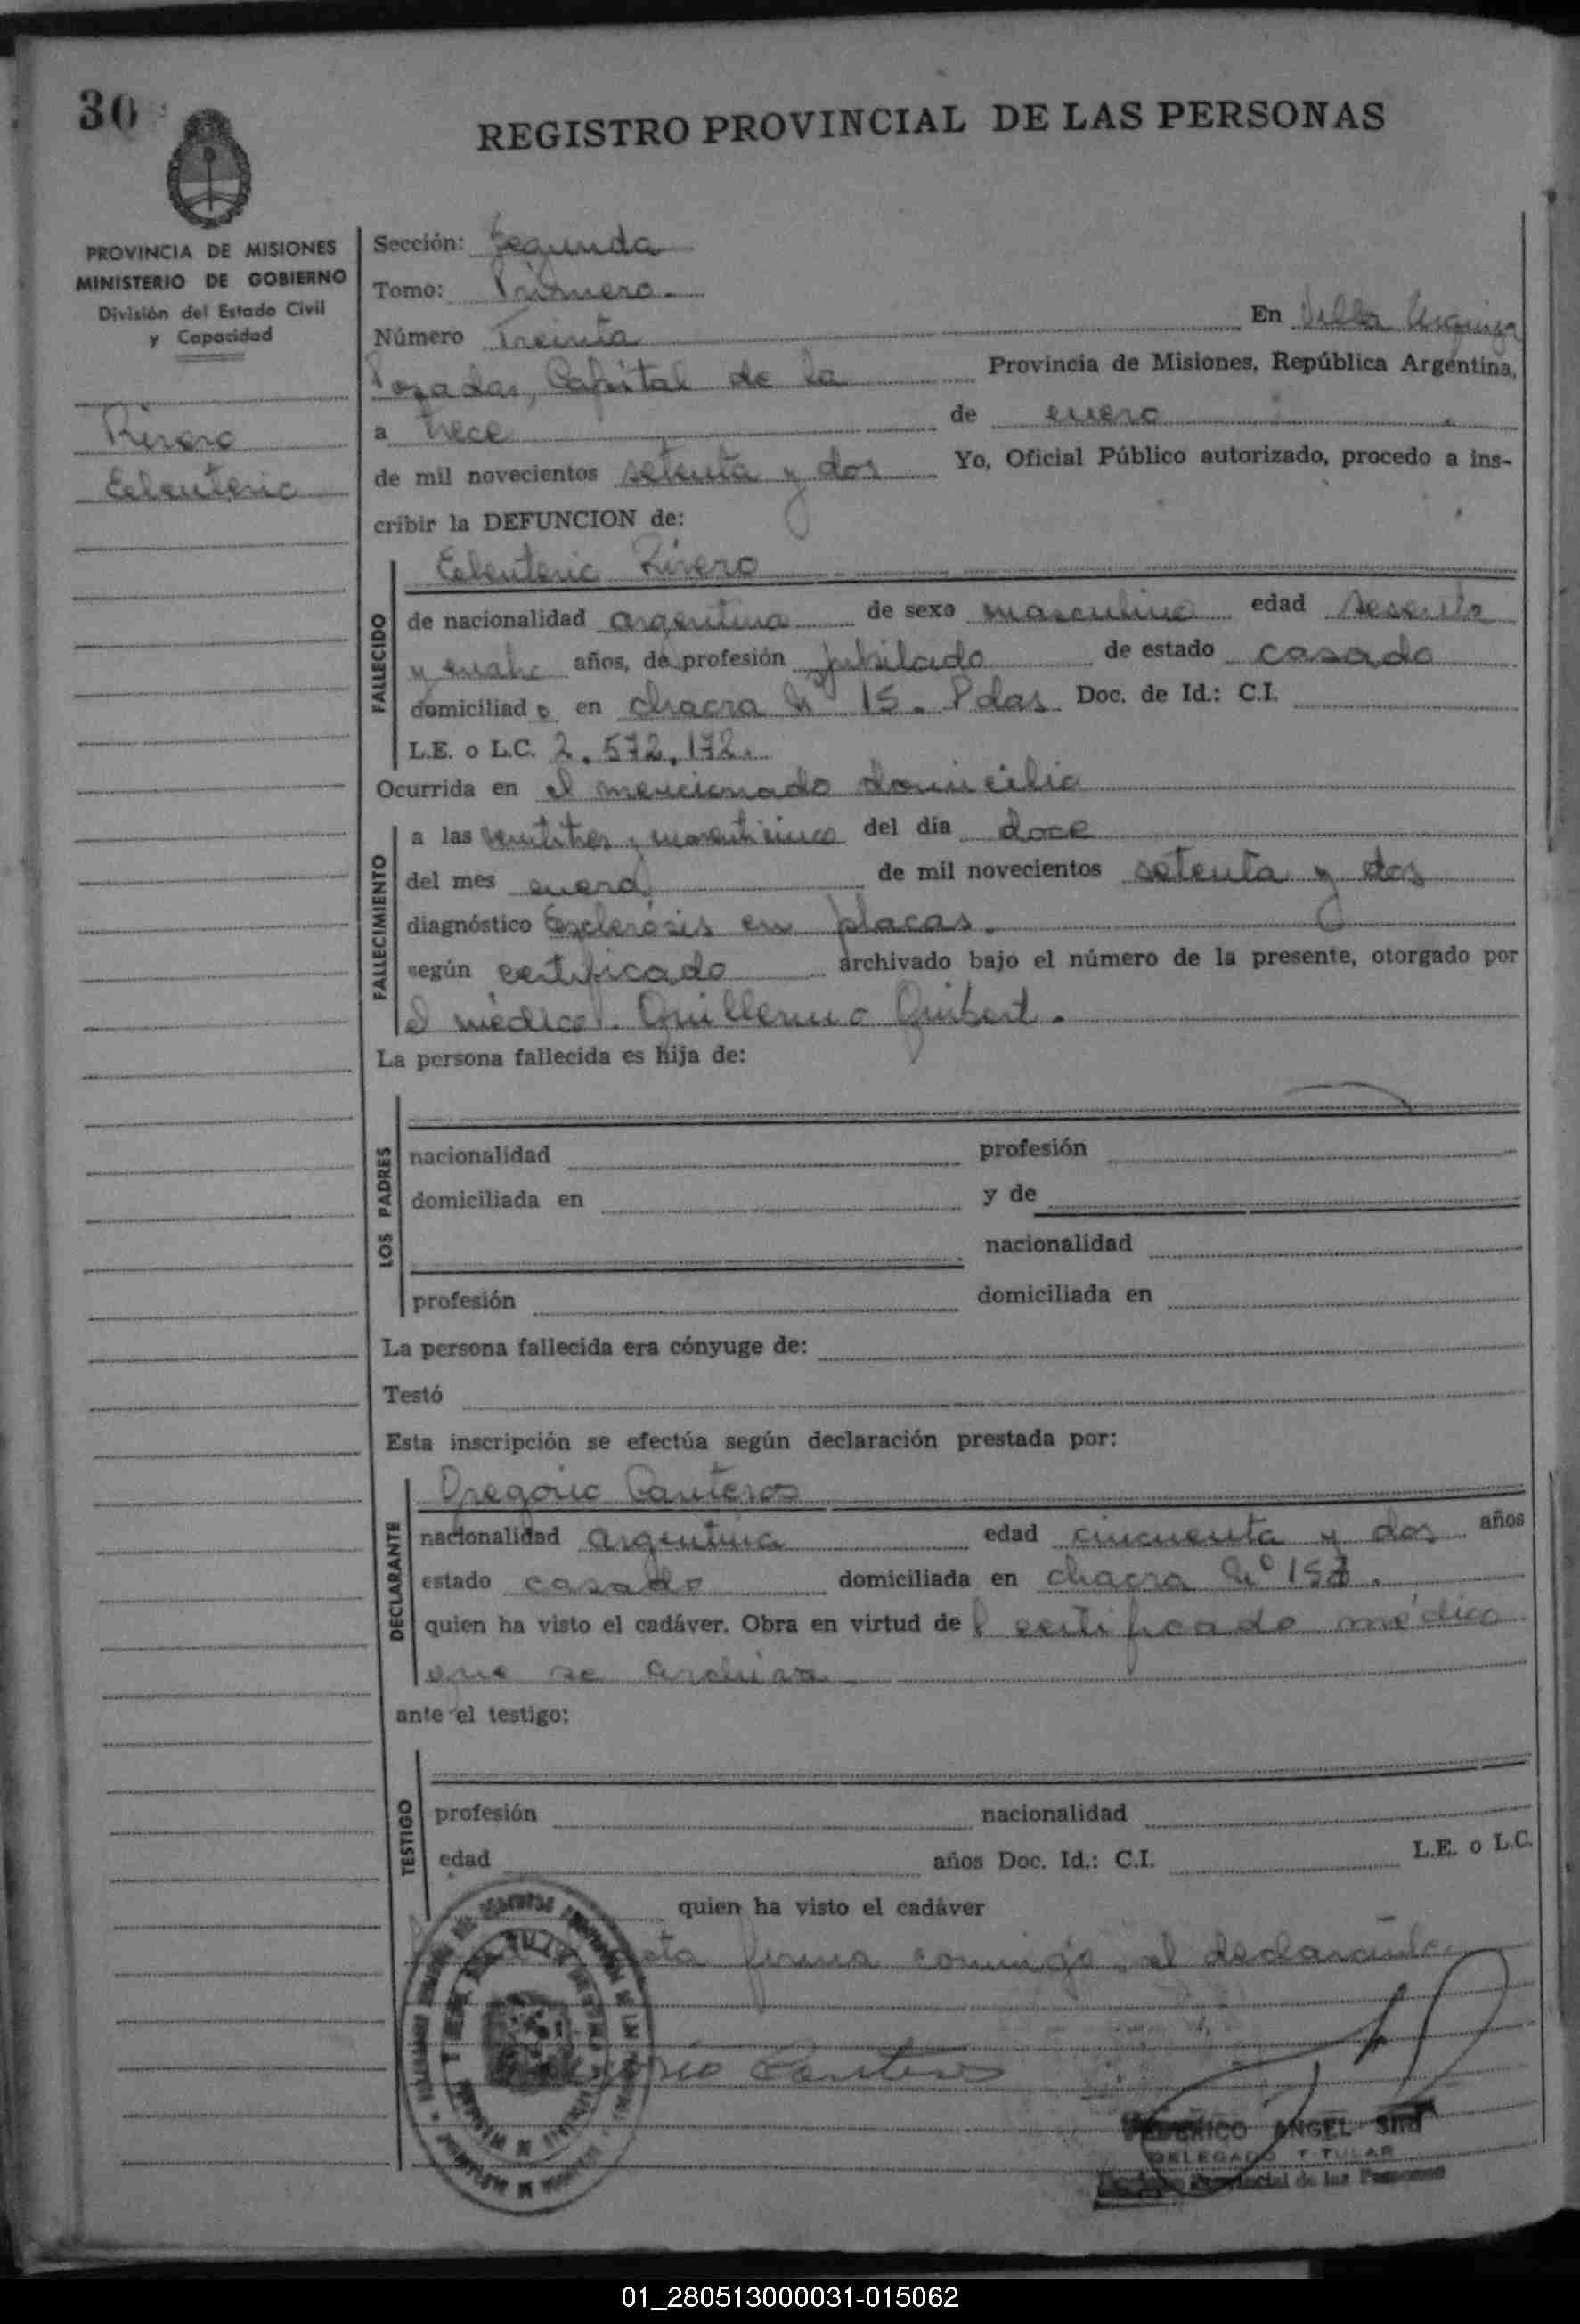 30
REGISTRO PROVINCIAL DE LAS PERSONAS
PROVINCIA DE MISIONES
MINISTERIO DE GOBIERNO
División del Estado Civil
y Capacidad
Rivero
Eeleuterio
Sección: Segunda
Tomo: Primero.
Número Treinta En Villa Urquiza
Posadas, Capital de la Provincia de Misiones, República Argentina,
a trece de enero
de mil novecientos setenta y dos Yo, Oficial Público autorizado, procedo a ins-
cribir la DEFUNCION de:
FALLECIDO
Eeleuterio Rivero
de nacionalidad argentina de sexo masculino edad sesenta
y cuatro años, de profesión jubilado de estado casado
domiciliado en chacra Nº 15. Pdas Doc. de Id.: C.I.
L.E. o L.C. 2.572.172.
Ocurrida en el mencionado domicilio
FALLECIMIENTO
a las veintitres y cuarenticinco del día doce
del mes enero de mil novecientos setenta y dos
diagnóstico Esclerosis en placas.
según certificado archivado bajo el número de la presente, otorgado por
el médico. Guillermo Guibert.
La persona fallecida es hija de:
LOS PADRES
nacionalidad profesión
domiciliada en y de
nacionalidad
profesión domiciliada en
La persona fallecida era cónyuge de:
Testó
Esta inscripción se efectúa según declaración prestada por:
DECLARANTE
Gregorio Canteros
nacionalidad argentina edad cincuenta y dos años
estado casado domiciliada en chacra Nº
quien ha visto el cadáver. Obra en virtud del certificado médico
que se archiva
ante el testigo:
TESTIGO
profesión nacionalidad
edad años Doc. Id.: C.I. L.E. o L.C.
quien ha visto el cadáver
acta firma conmigo el declarante
Gregorio Canteros
ANGEL
DELEGADO TITULAR
Provincial de las Personas
01_280513000031-015062